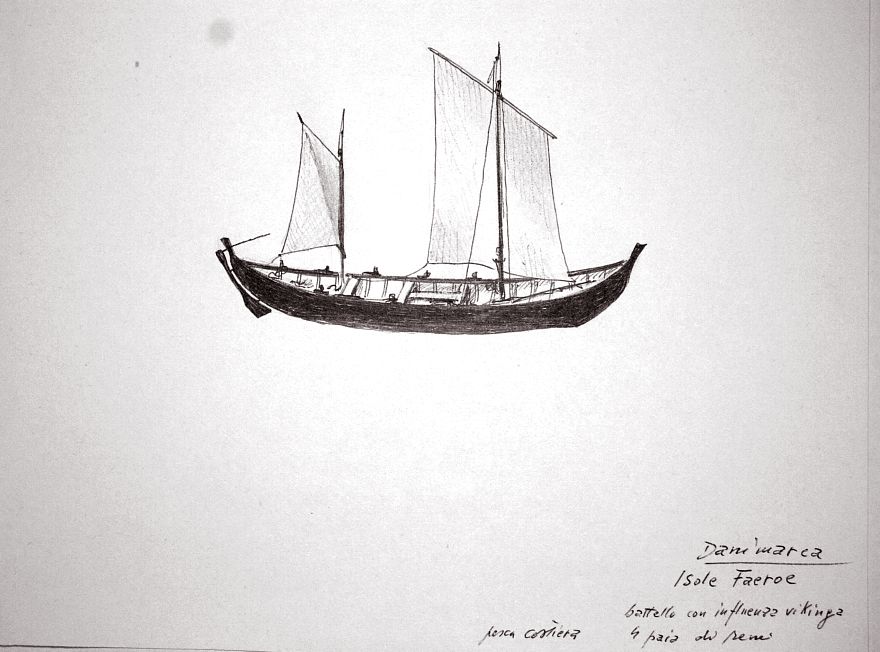 Danimarca
Isole Faeroe
battello con influenza vikinga
pesca costiera 4 paia di remi